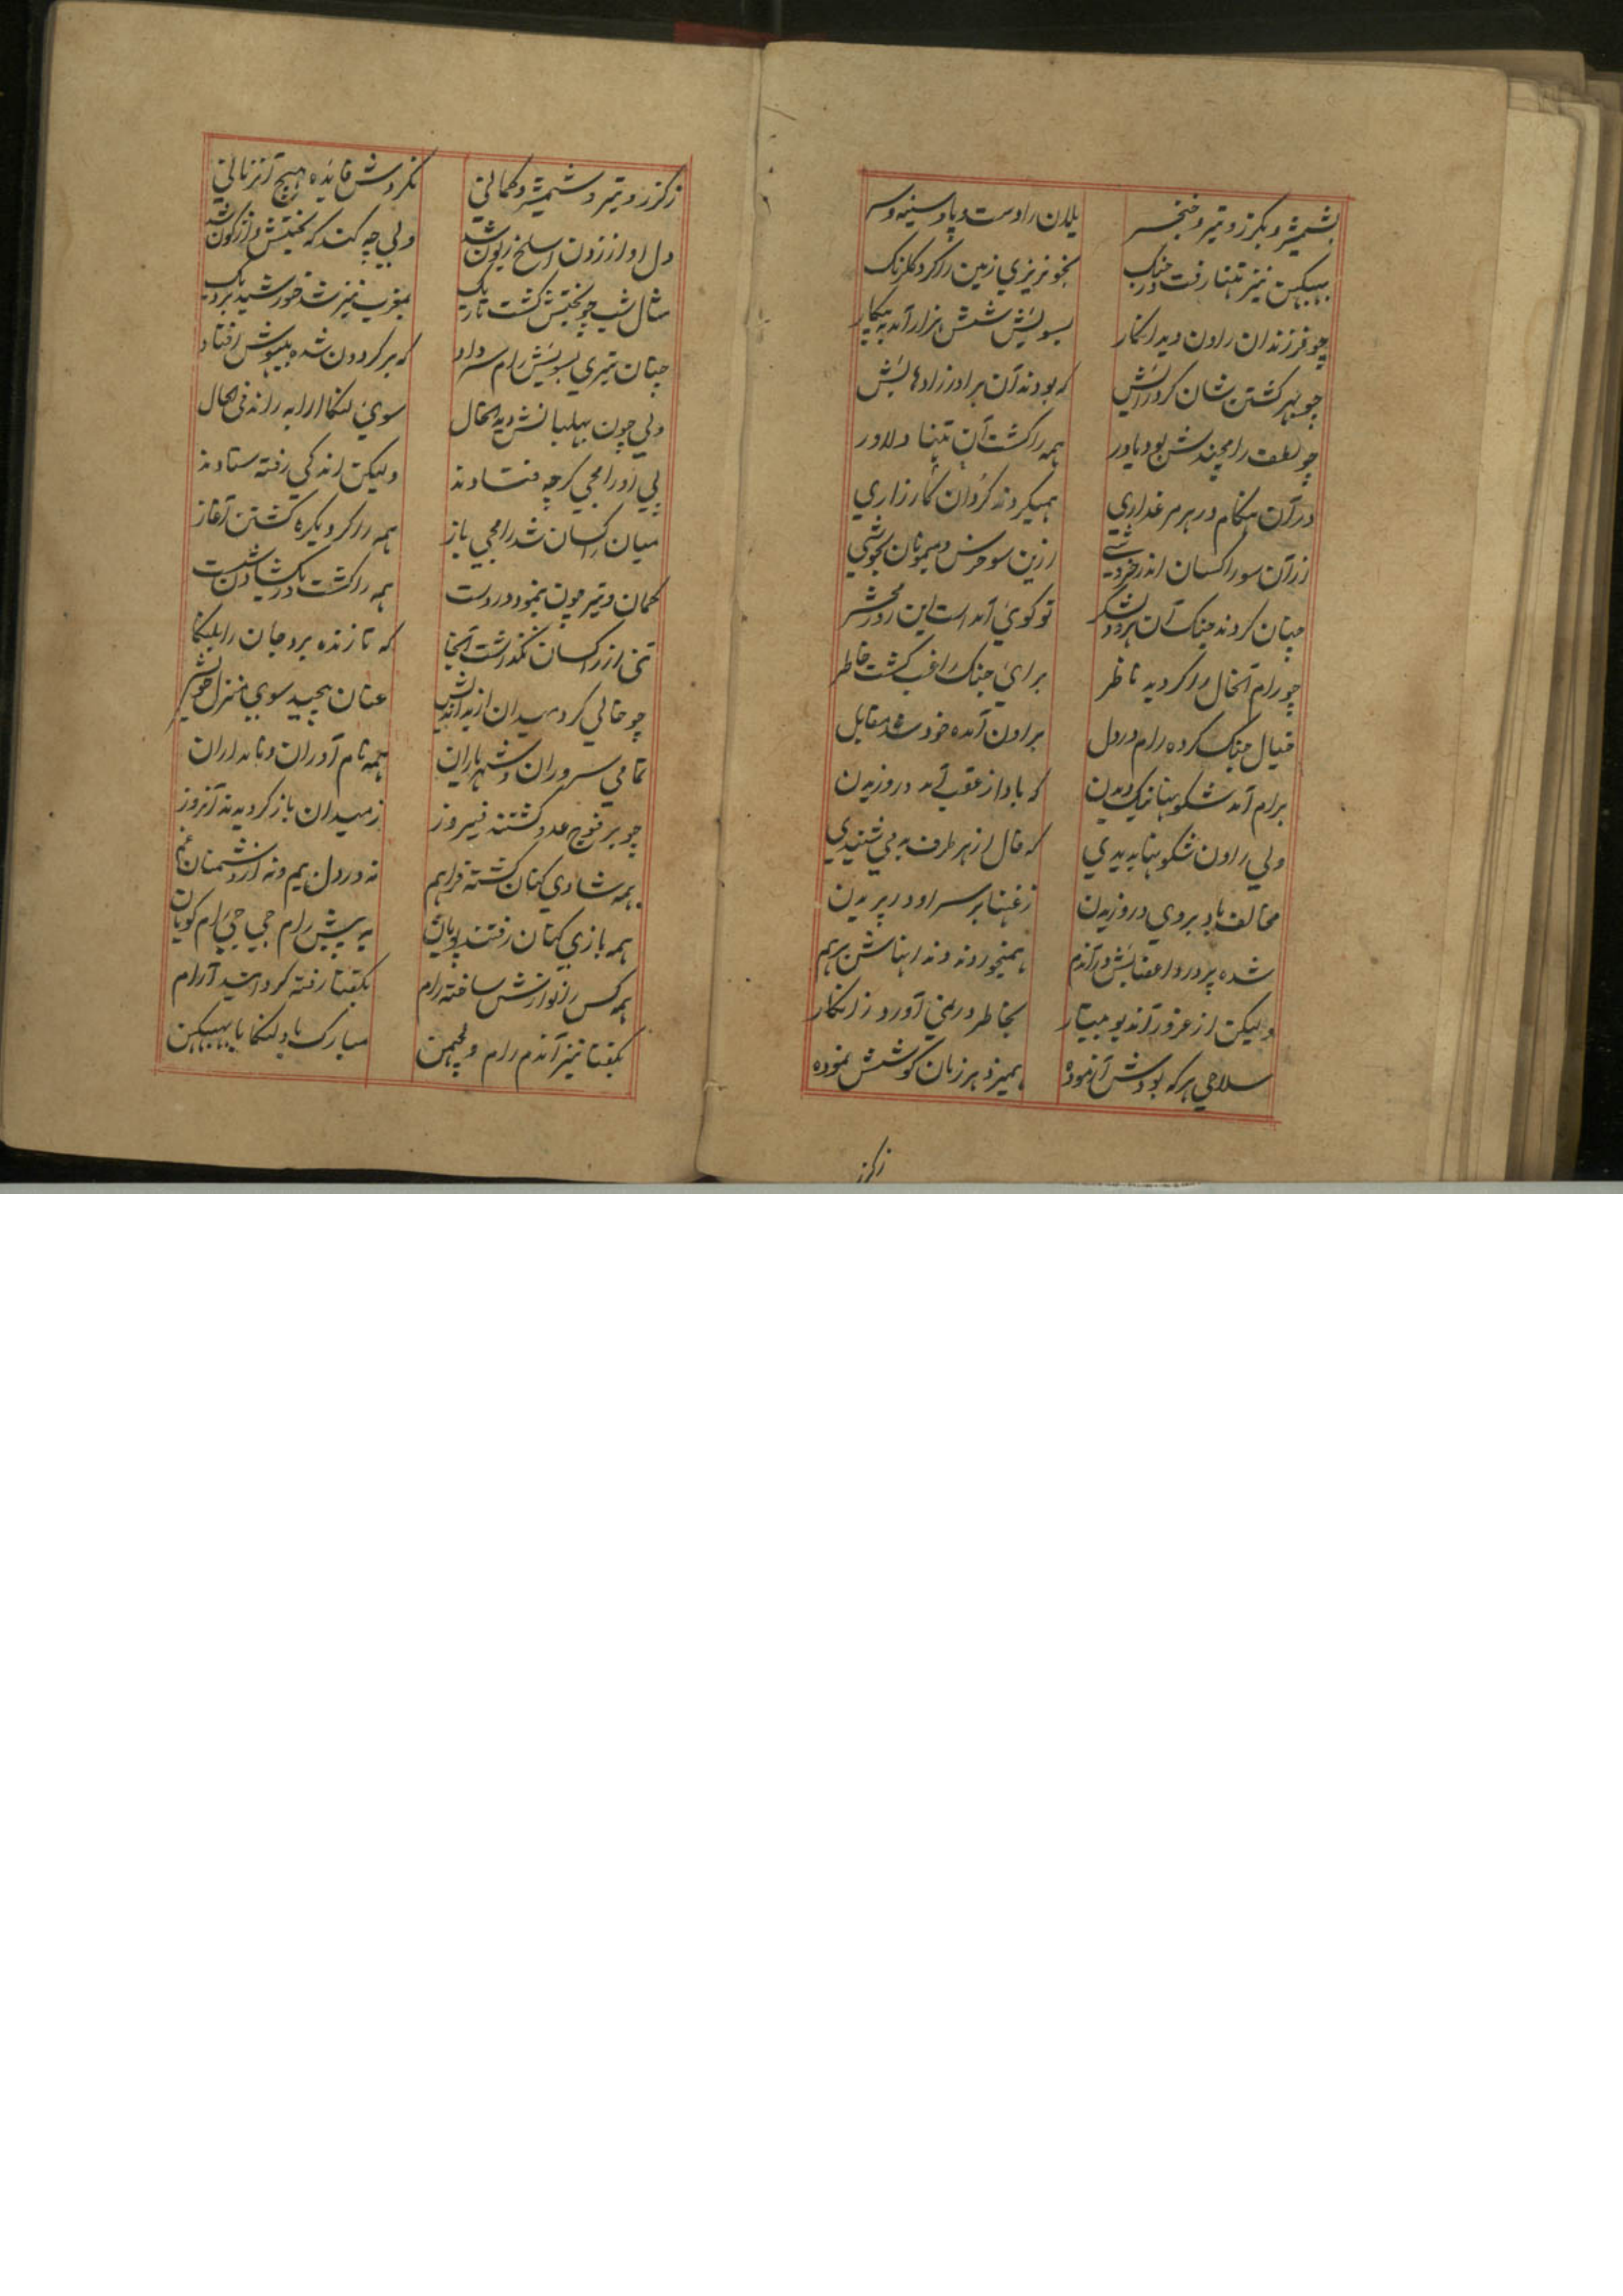 بشمشیر و بکرز و تیر و خنجر یلان را دست و پا و سینه و سر
بهبیکن نیز تنها رفت در جنک بخونریزی زمین را کرد کلرنک
چو فرزندان راون دید اینکار بسویش شش هزار آمد به پیکار
چو بهر کشتن شان کرد رایش که بودند آن برادر زادهایش
چو لطف رامچندش بود یاور همه را کشت آن تنها دلاور
در آن هنکام در هر مرغذاری همیکردند کردان کارزاری
زآن سو راکسان اندر خروشی زین سو خرس و میمونان بجوشی
چنان کردند جنک آن هر دو لشکر تو کوئی آمد است این روز محشر
چو رام آنحال را کردیده ناظر برای جنک راغب کشت خاطر
خیال جنک کرده رام در دل براون آمده خود شد مقابل
برام آمد شکونها نیک دیدن که باد از عقب آمد در وزیدن
ولی راون شکونها بد بدیدی که فال از هر طرف بد می شنیدی
مخالف باد بروی در وزیدن زغنها بر سر او در پریدن
شده پر درد اعضایش در آندم همیخوردند دندانهاش برهم
ولیکن از غرور آندیو جبار بخاطر در نمی آورد زانکار
سلاحی هر که بودش آزموده همیزد هر زمان کوشش نموده
زکرز
زکرز و تیر و شمشیر و کمانی نکردش فایده هیچ آنزمانی
دل او از زدن اسلح زبون شد ولی چه کند که بختش واژکون شد
مثال شب چو بختش کشت تاریک بمغرب نیز شد خورشید نزدیک
چنان تیری بسویش رام سر داد که بر کردون شده بیهوش افتاد
ولی چون بهلبانش دید الحال سوی لنکا ارابه راند فی الحال
پی او رامجی کرچه فتادند ولیکن اندکی رفته ستادند
میان راکسان شد رامجی باز همه را کرد یکره کشتن آغاز
کمان و تیر چون بنمود در دست همه را کشت در یکشادن شست
تنی از راکسان نکذاشت آنجا که تا زنده برد جان را بلنکا
چو خالی کرد میدان از بداندیش عنان پیچید سوی منزل خویش
تمامی سروران و شهریاران همه نام آوران و نامداران
چو بر فوج عدو کشتند فیروز زمیدان باز کردیدند آنروز
همه شادی کنان کشته فراهم نه در دل بیم و نه از دشمنان غم
همه بازی کنان رفتند پویان به پیش رام جی جی رام کویان
همه کس را نوازش ساخته رام بکفتا رفته کرد استید آرام
بکفتا نیز آندم رام و لچهمن مبارک باد لنکا با بهبیکن